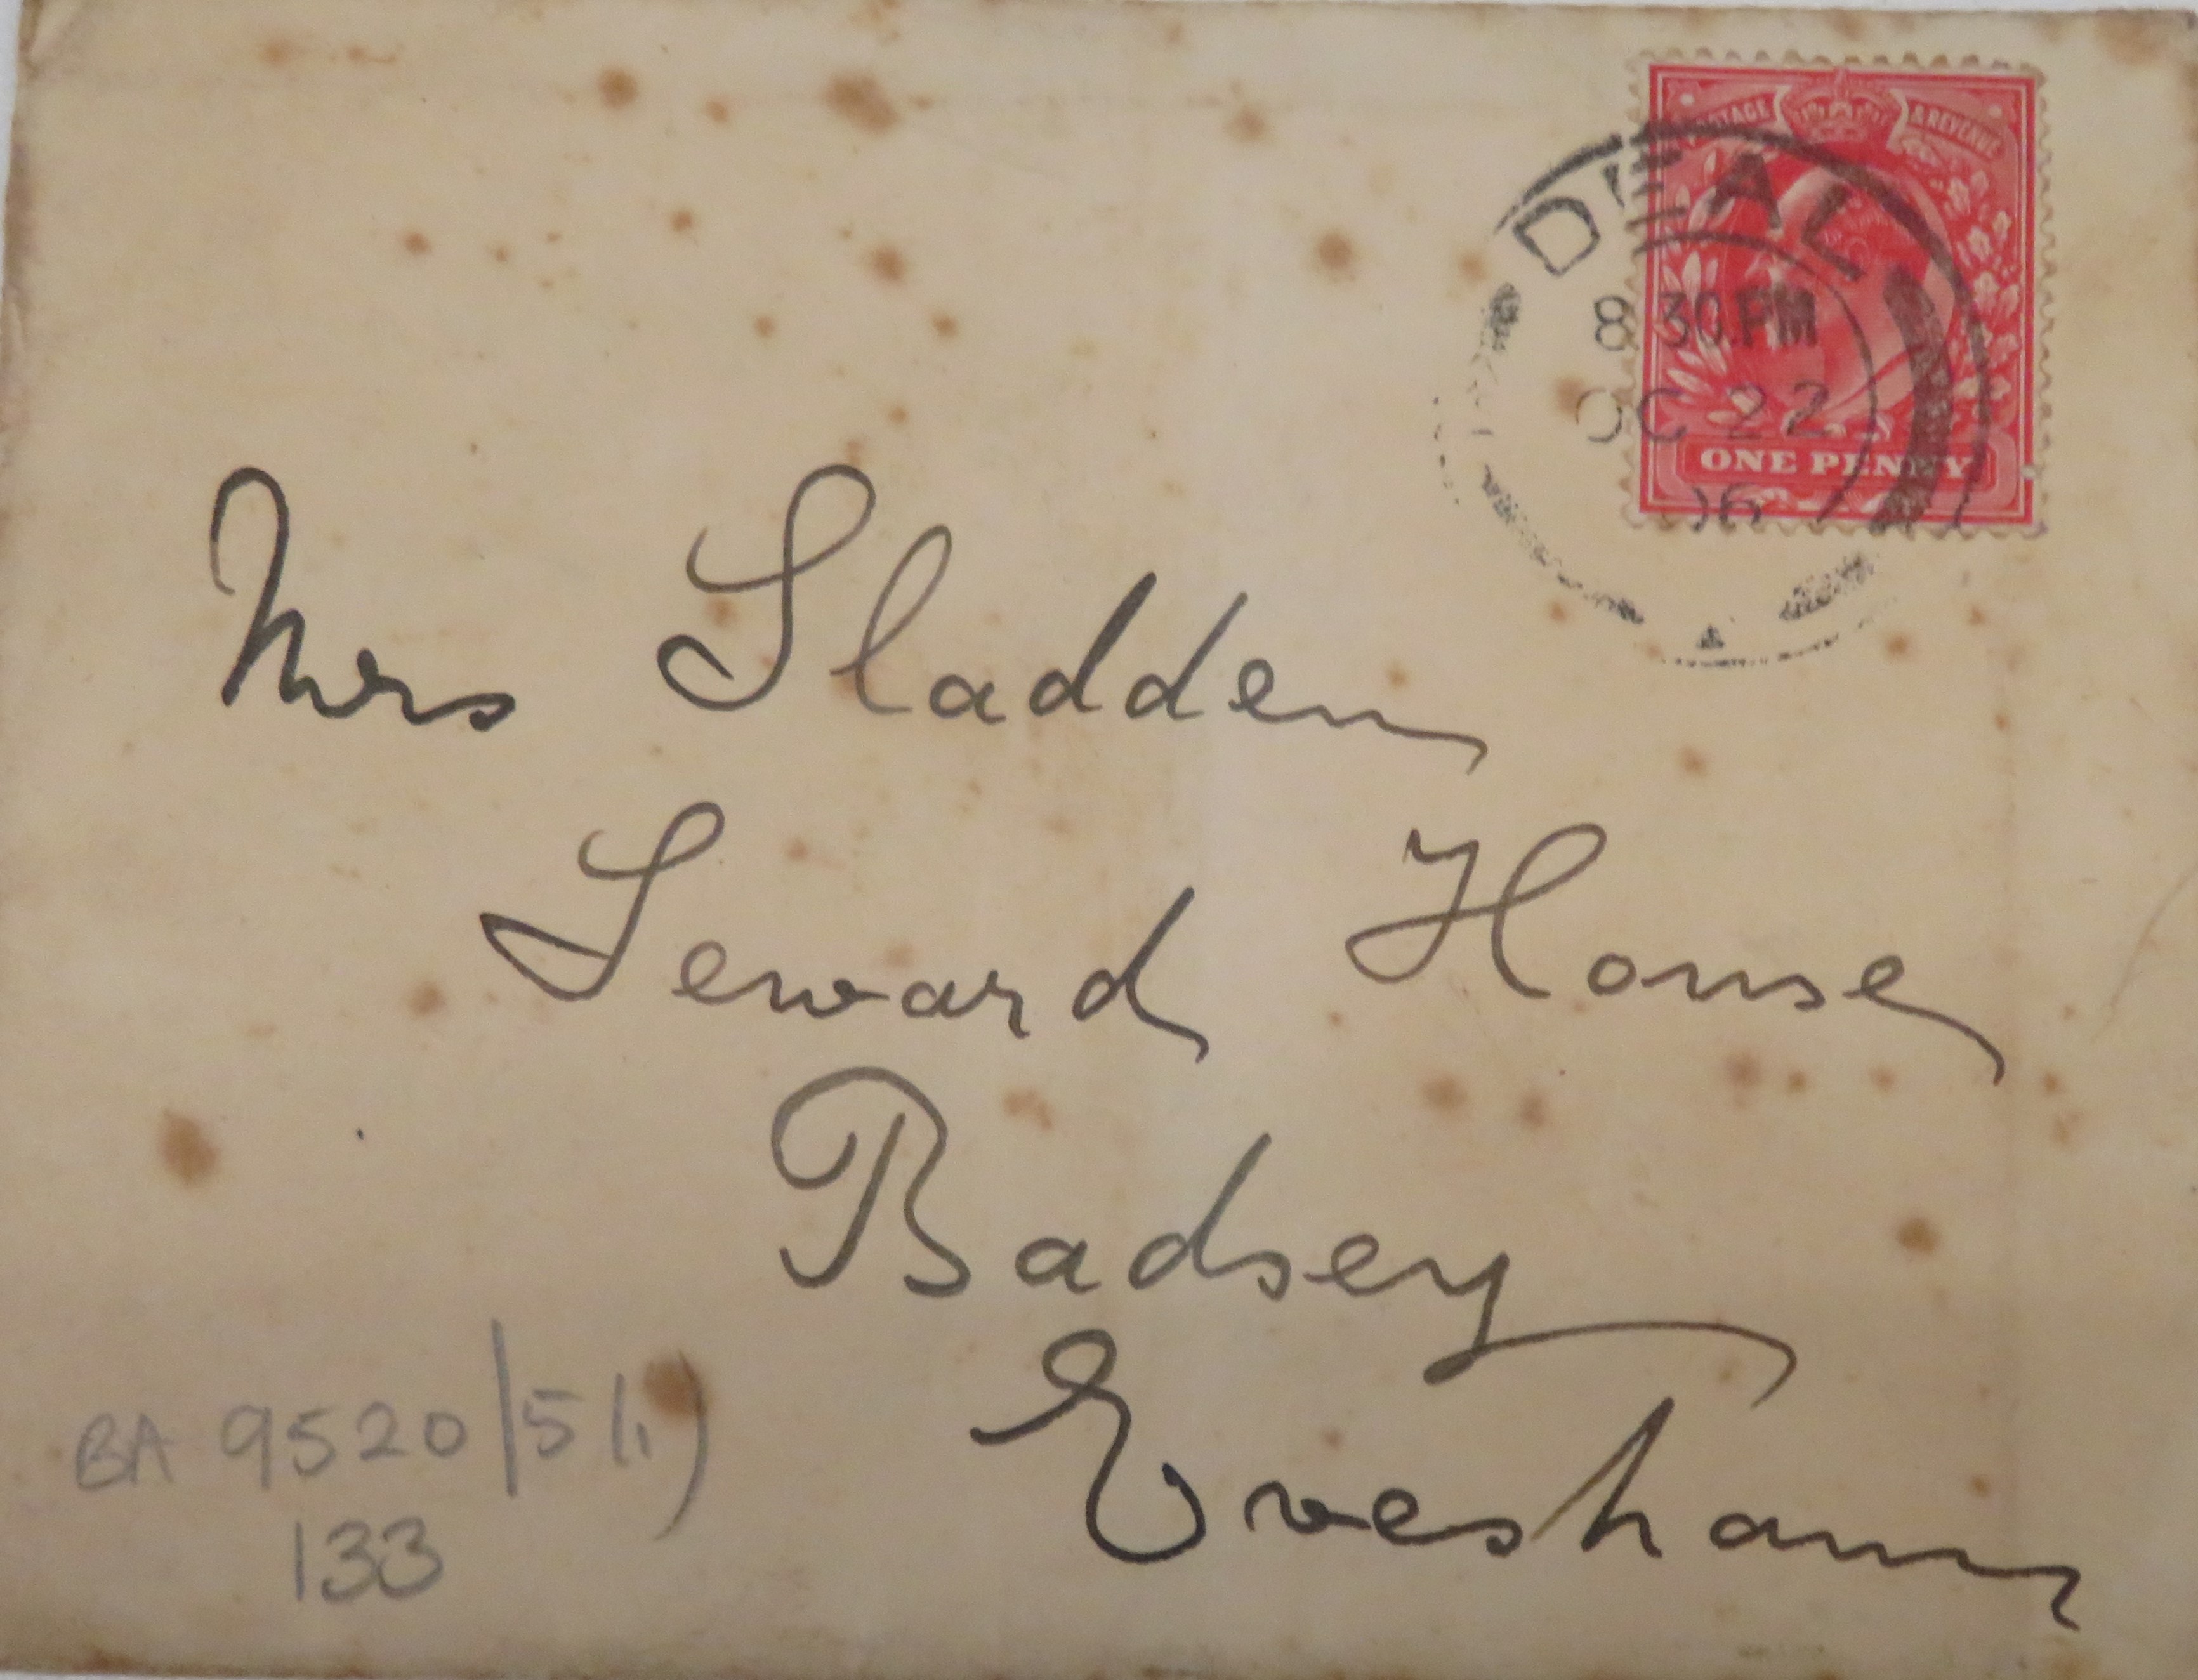 POSTAGE & REVENUE
DEAL
8.30.PM
OC 22
06
ONE PENNY
Mrs Sladden
Seward House
Badsey
Evesham
BA 9520/5(1)
133